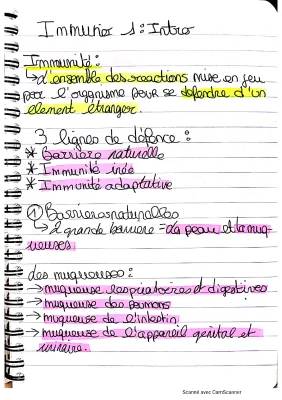 Immunité 1: Intro
Immunité:
↳ L'ensemble des reactions mise en jeu
par l'organisme pour se defendre d'un
element étranger.
3 lignes de défence:
* Barrière naturelle
* Immunité inée
* Immunité adaptative
① Barrieres naturelles
↳ 2 grande barriere = la peau et la muq-
ueuses
des muqueuses:
→ muqueuse respiratoires et digestives
→ muqueuse des poumons
→ muqueuse de l'intestin
→ muqueuse de l'appareil genital et
urinaire.
Scanné avec CamScanner